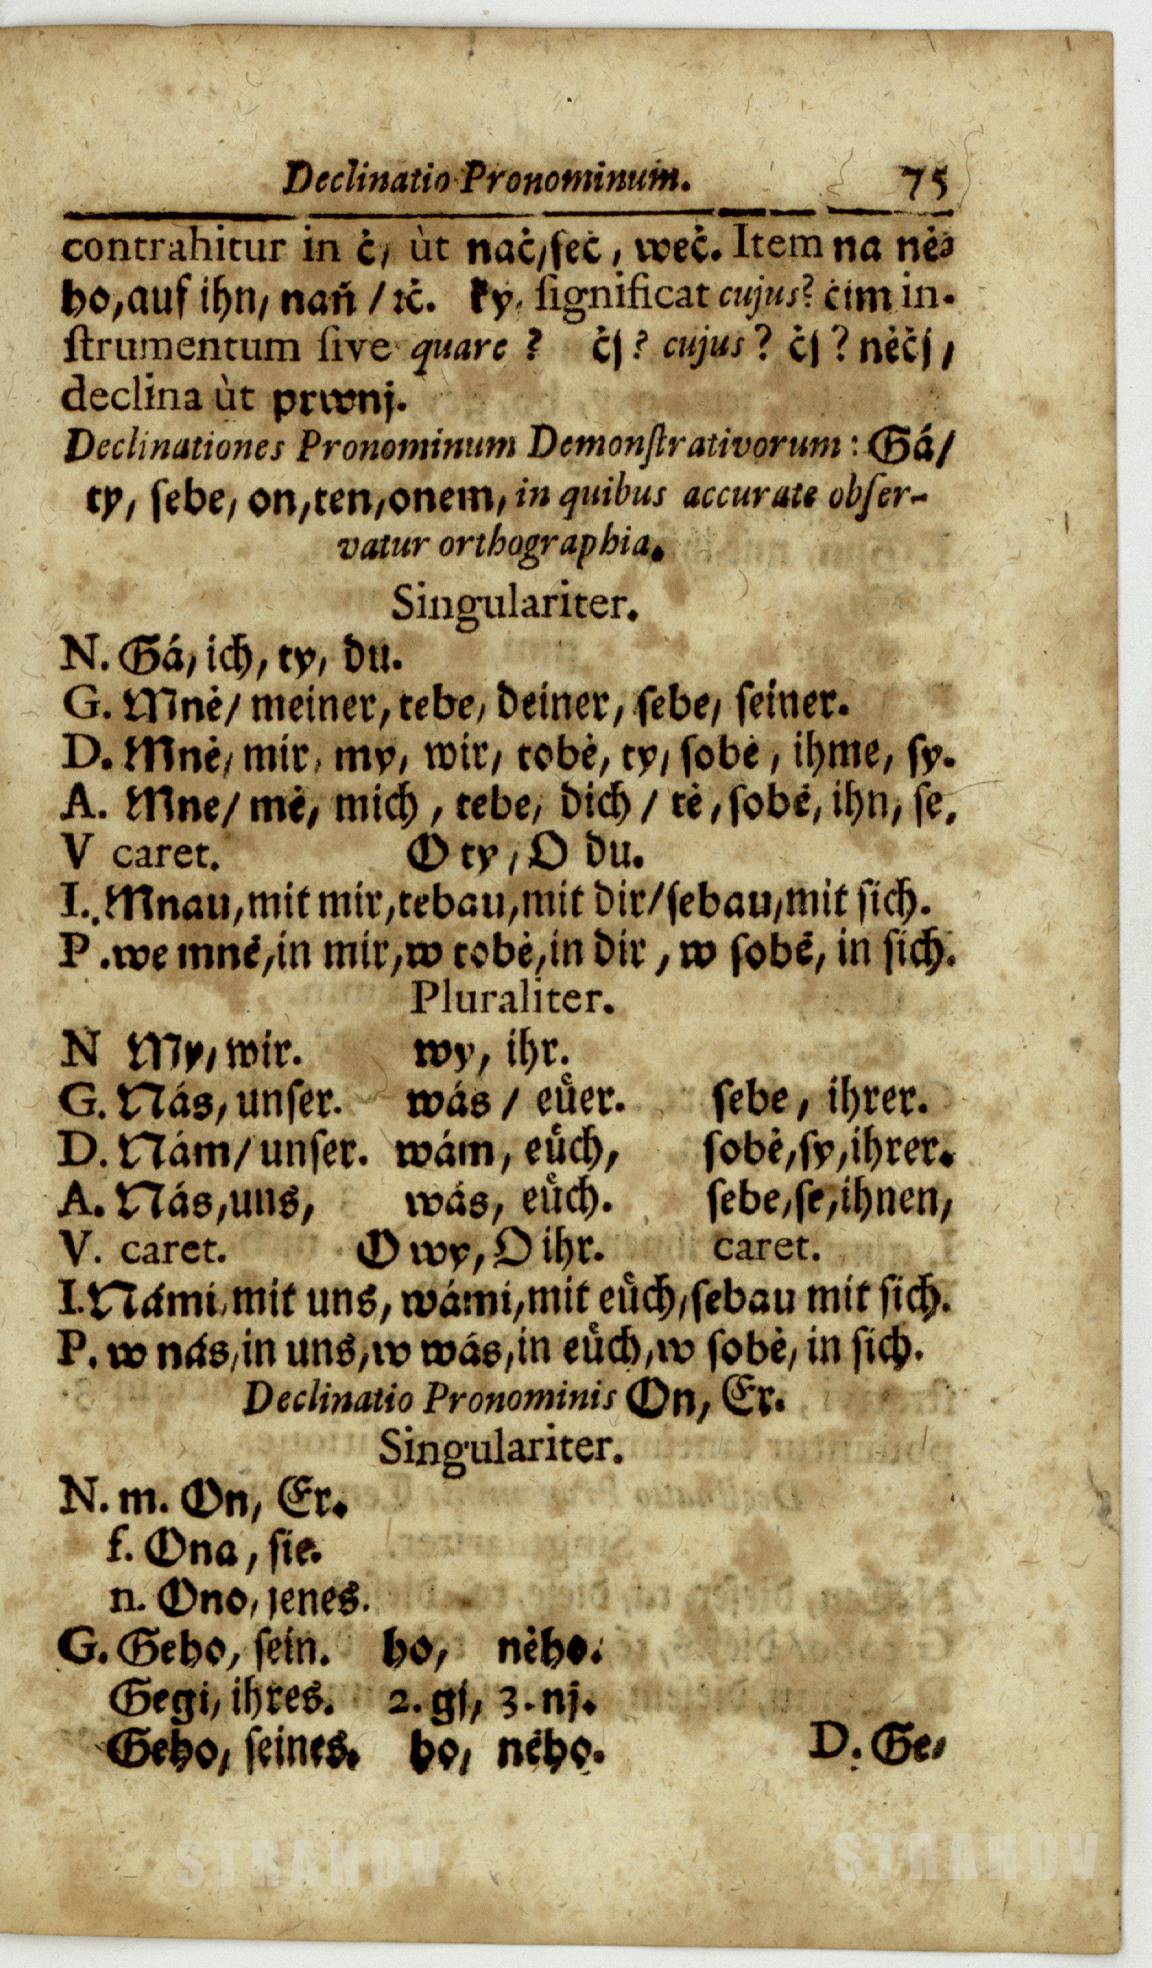 Declinatio Pronominum. 75
contrahitur in č, ùt nač, seč, weč. Item na ně-
ho, auf ihn, naň / ꝛč. ky, significat cujus? čim in-
strumentum sive quare? čj? cujus? čj? něčj,
declina ùt prwnj.
Declinationes Pronominum Demonstrativorum: Gá/
ty, sebe, on, ten, onem, in quibus accurate obser-
vatur orthographia.
Singulariter.
N. Gá, ich, ty, du.
G. Mně/ meiner, tebe, deiner, sebe, seiner.
D. Mně, mir, my, wir, tobě, ty, sobě, ihme, sy.
A. Mne/ mě, mich, tebe, dich / tě, sobě, ihn, se.
V caret. O ty, O du.
I. Mnau, mit mir, tebau, mit dir/ sebau, mit sich.
P. we mně, in mir, w tobě, in dir, w sobě, in sich.
Pluraliter.
N My, wir. wy, ihr.
G. Nás, unser. wás / eůer. sebe, ihrer.
D. Nám/ unser. wám, eůch, sobě, sy, ihrer.
A. Nás, uns, wás, eůch. sebe, se, ihnen,
V. caret. O wy, O ihr. caret.
I. Námi, mit uns, wámi, mit eůch, sebau mit sich.
P. w nás, in uns, w wás, in eůch, w sobě, in sich.
Declinatio Pronominis On, Er.
Singulariter.
N. m. On, Er.
f. Ona, sie.
n. Ono, jenes.
G. Geho, sein. ho, něho.
Gegi, ihres. 2. gj, 3. nj.
Geho, seines. ho, něho. D. Ge-
STRAHOV STRAHOV